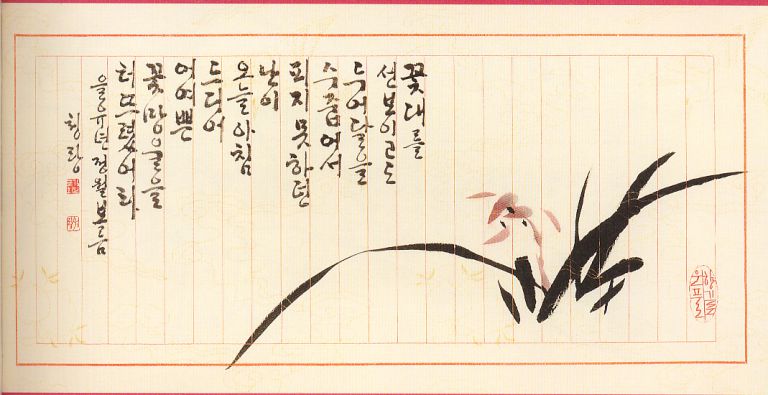 꽃대를
선보이고도
두어달을
수줍어서
피지못하던
난이
오늘아침
드디어
어여쁜
꽃망울을
터뜨렸어라
을유년 정월보름